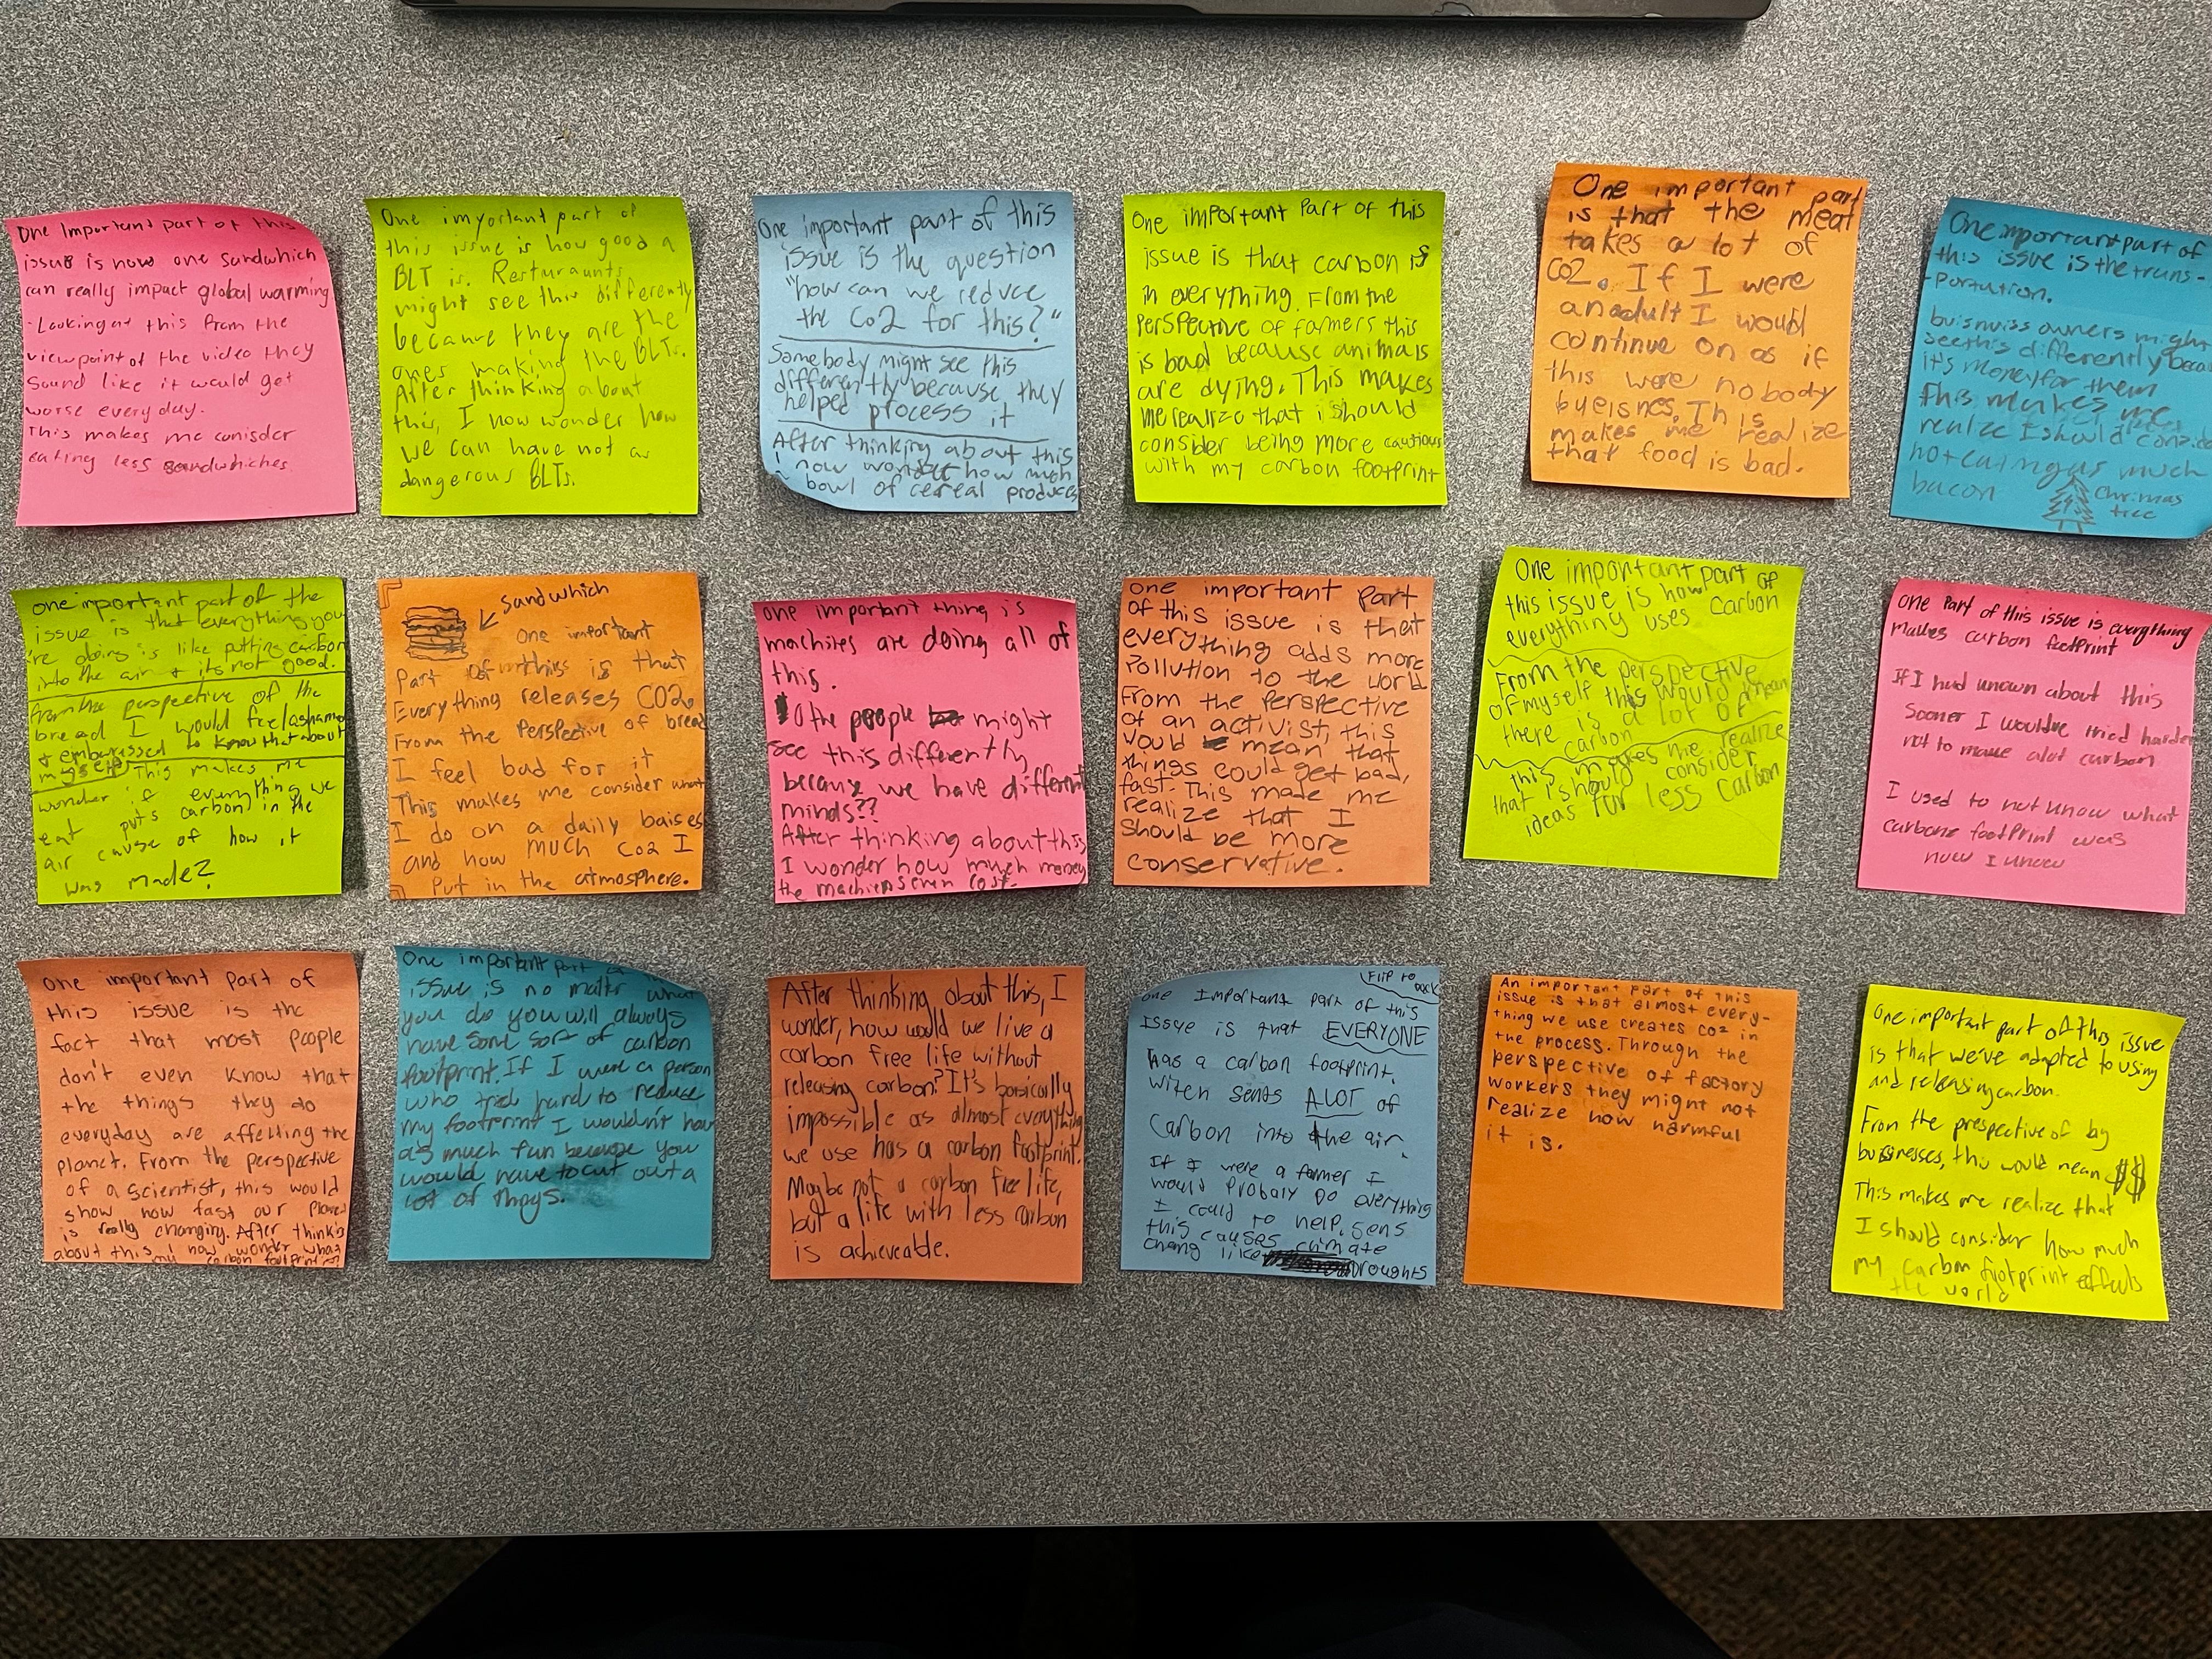 One Important part of this
issue is how one sandwhich
can really impact global warming
-Looking at this from the
viewpoint of the video they
sound like it would get
worse every day.
This makes me conisder
eating less sandwhiches
One important part of
this issue is how good a
BLT is. Resturaunts
might see this differently
because they are the
ones making the BLTs.
After thinking about
this, I now wonder how
we can have not as
dangerous BLTs.
One important part of this
issue is the question
"how can we reduce
the Co2 for this?"
Somebody might see this
differently because they
helped process it
After thinking about this
I now wonder how much
bowl of cereal produces
One important Part of this
issue is that carbon is
in everything. From the
perspective of farmers this
is bad because animals
are dying. This makes
me realize that i should
consider being more cautious
with my carbon footprint
One important part
is that the meat
takes a lot of
CO2. If I were
an adult I would
continue on as if
this were nobody
bueisnes. This
makes me realize
that food is bad.
One important part of
this issue is the trans-
portation.
buisnuiss owners might
see this differently beca
it's money for them
this makes me
realize I should consid
not eating as much
bacon
Christmas
tree
one important part of the
issue is that everything you
're doing is like putting carbon
into the air & its not good.
from the perspective of the
bread I would feel ashame
& embarressed to know that about
myself. This makes me
wonder if everything we
eat puts carbon in the
air cause of how it
was made?
Sandwhich
One important
Part of this is that
Everything releases CO2.
From the Perspective of bread
I feel bad for it
This makes me consider what
I do on a daily baises
and how much Co2 I
Put in the atmosphere.
one important thing is
machines are doing all of
this.
Othe people might
see this differently
because we have different
minds??
After thinking about this
I wonder how much money
the machies even cost.
One important part
of this issue is that
everything adds more
pollution to the world
From the Perspective
of an activist, this
would mean that
things could get bad,
fast. This made me
realize that I
should be more
conservative.
One important part of
this issue is how
everything uses Carbon
From the perspective
of myself this would mean
there is a lot of
carbon
this makes me realize
that i should consider
ideas for less carbon
One Part of this issue is everything
makes carbon footprint
If I had unown about this
sooner I would've tried harder
not to make alot carbon
I used to not unow what
carbone footprint was
now I unow
One important part of
this issue is the
fact that most people
don't even know that
the things they do
everyday are affecting the
planet. From the perspective
of a scientist, this would
show how fast our planet
is really changing. After thinking
about this, I now wonder what
my carbon footprint is?
One important part
issue is no matter what
you do you will always
have some sort of carbon
footprint. If I were a person
who tried hard to reduce
my footprint I wouldn't have
as much fun because you
would have to cut out a
lot of thngs.
After thinking about this, I
wonder, how would we live a
carbon free life without
releasing carbon? It's basically
impossible as almost everything
we use has a carbon footprint.
Maybe not a carbon free life,
but a life with less carbon
is achieveable.
Flip to
back
one Important part of this
Issue is that EVERYONE
has a carbon footprint.
witch sends ALOT of
Carbon into the air.
If I were a farmer I
would Probaly Do everything
I could to help, sens
this causes climate
chang like Droughts
An important part of this
issue is that almost every-
thing we use creates CO2 in
the process. Through the
perspective of factory
workers they might not
realize how harmful
it is.
One important part of this issue
is that we've adapted to using
and releasing carbon.
From the prespective of big
businesses, this would mean $$
This makes me realize that
I should consider how much
my carbon footprint effects
the world